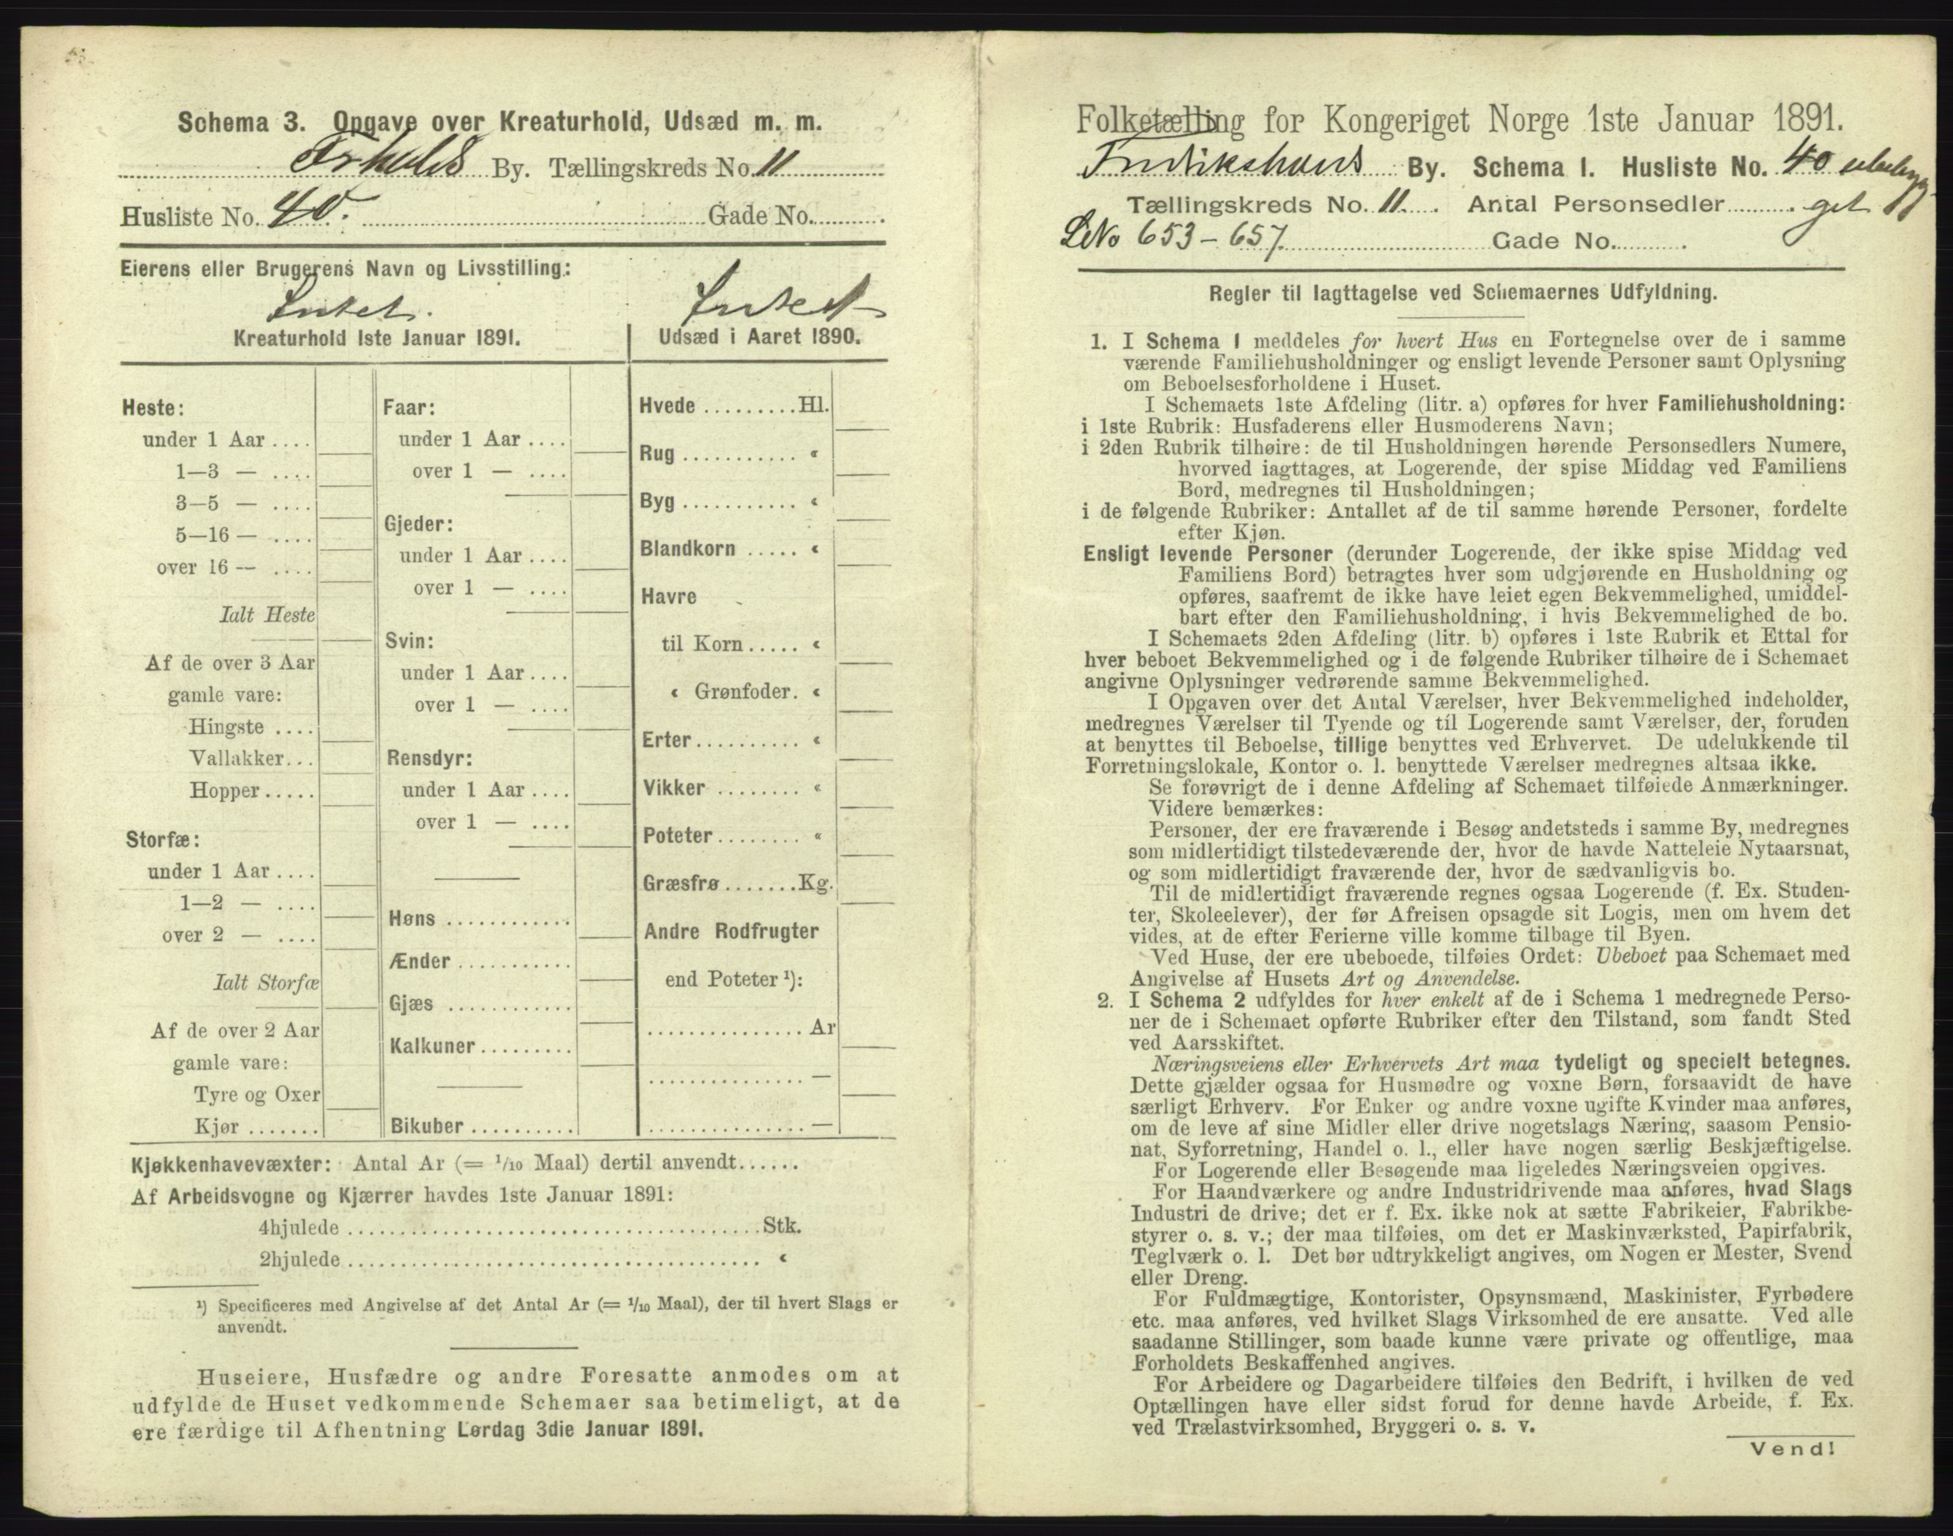 Schema 3. Opgave over Kreaturhold, Udsæd m. m.
Frhalds By. Tællingskreds No. 11
Husliste No. 40. Gade No.
Eierens eller Brugerens Navn og Livsstilling:
Intet. Intet
Kreaturhold 1ste Januar 1891. Udsæd i Aaret 1890.
Heste:
under 1 Aar ....
1—3 — ....
3—5 — ....
5—16 — ....
over 16 — ....
Ialt Heste
Af de over 3 Aar
gamle vare:
Hingste ....
Vallakker...
Hopper.....
Storfæ:
under 1 Aar ....
1—2 — ....
over 2 — ....
Ialt Storfæ
Af de over 2 Aar
gamle vare:
Tyre og Oxer
Kjør .......
Faar:
under 1 Aar ....
over 1 — ....
Gjeder:
under 1 Aar ....
over 1 — ....
Svin:
under 1 Aar ....
over 1 — ....
Rensdyr:
under 1 Aar ....
over 1 — ....
Høns ............
Ænder ...........
Gjæs ............
Kalkuner.........
Bikuber ..........
Hvede .........Hl.
Rug ........... «
Byg ........... «
Blandkorn ..... «
Havre
til Korn ..... «
« Grønfoder. «
Erter.......... «
Vikker ........ «
Poteter........ «
Græsfrø .......Kg.
Andre Rodfrugter
end Poteter ¹):
............... Ar
............... —
............... —
Kjøkkenhavevæxter: Antal Ar (= 1/10 Maal) dertil anvendt......
Af Arbeidsvogne og Kjærrer havdes 1ste Januar 1891:
4hjulede ........................................Stk.
2hjulede ........................................ «
¹) Specificeres med Angivelse af det Antal Ar (= 1/10 Maal), der til hvert Slags er
anvendt.
Huseiere, Husfædre og andre Foresatte anmodes om at
udfylde de Huset vedkommende Schemaer saa betimeligt, at de
ere færdige til Afhentning Lørdag 3die Januar 1891.
Folketælling for Kongeriget Norge 1ste Januar 1891.
Fredrikshalds By. Schema 1. Husliste No. 40 ubebyg-
Tællingskreds No. 11. Antal Personsedler . get
LNo 653 - 657. Gade No. .
Regler til Iagttagelse ved Schemaernes Udfyldning.
1. I Schema 1 meddeles for hvert Hus en Fortegnelse over de i samme
værende Familiehusholdninger og ensligt levende Personer samt Oplysning
om Beboelsesforholdene i Huset.
I Schemaets 1ste Afdeling (litr. a) opføres for hver Familiehusholdning:
i 1ste Rubrik: Husfaderens eller Husmoderens Navn;
i 2den Rubrik tilhøire: de til Husholdningen hørende Personsedlers Numere,
hvorved iagttages, at Logerende, der spise Middag ved Familiens
Bord, medregnes til Husholdningen;
i de følgende Rubriker: Antallet af de til samme hørende Personer, fordelte
efter Kjøn.
Ensligt levende Personer (derunder Logerende, der ikke spise Middag ved
Familiens Bord) betragtes hver som udgjørende en Husholdning og
opføres, saafremt de ikke have leiet egen Bekvemmelighed, umiddel-
bart efter den Familiehusholdning, i hvis Bekvemmelighed de bo.
I Schemaets 2den Afdeling (litr. b) opføres i 1ste Rubrik et Ettal for
hver beboet Bekvemmelighed og i de følgende Rubriker tilhøire de i Schemaet
angivne Oplysninger vedrørende samme Bekvemmelighed.
I Opgaven over det Antal Værelser, hver Bekvemmelighed indeholder,
medregnes Værelser til Tyende og til Logerende samt Værelser, der, foruden
at benyttes til Beboelse, tillige benyttes ved Erhvervet. De udelukkende til
Forretningslokale, Kontor o. l. benyttede Værelser medregnes altsaa ikke.
Se forøvrigt de i denne Afdeling af Schemaet tilføiede Anmærkninger.
Videre bemærkes:
Personer, der ere fraværende i Besøg andetsteds i samme By, medregnes
som midlertidigt tilstedeværende der, hvor de havde Natteleie Nytaarsnat,
og som midlertidigt fraværende der, hvor de sædvanligvis bo.
Til de midlertidigt fraværende regnes ogsaa Logerende (f. Ex. Studen-
ter, Skoleelever), der før Afreisen opsagde sit Logis, men om hvem det
vides, at de efter Ferierne ville komme tilbage til Byen.
Ved Huse, der ere ubeboede, tilføies Ordet: Ubeboet paa Schemaet med
Angivelse af Husets Art og Anvendelse.
2. I Schema 2 udfyldes for hver enkelt af de i Schema 1 medregnede Perso-
ner de i Schemaet opførte Rubriker efter den Tilstand, som fandt Sted
ved Aarsskiftet.
Næringsveiens eller Erhvervets Art maa tydeligt og specielt betegnes.
Dette gjælder ogsaa for Husmødre og voxne Børn, forsaavidt de have
særligt Erhverv. For Enker og andre voxne ugifte Kvinder maa anføres,
om de leve af sine Midler eller drive nogetslags Næring, saasom Pensio-
nat, Syforretning, Handel o. l., eller have nogen særlig Beskjæftigelse.
For Logerende eller Besøgende maa ligeledes Næringsveien opgives.
For Haandværkere og andre Industridrivende maa anføres, hvad Slags
Industri de drive; det er f. Ex. ikke nok at sætte Fabrikeier, Fabrikbe-
styrer o. s. v.; der maa tilføies, om det er Maskinværksted, Papirfabrik,
Teglværk o. l. Det bør udtrykkeligt angives, om Nogen er Mester, Svend
eller Dreng.
For Fuldmægtige, Kontorister, Opsynsmænd, Maskinister, Fyrbødere
etc. maa anføres, ved hvilket Slags Virksomhed de ere ansatte. Ved alle
saadanne Stillinger, som baade kunne være private og offentlige, maa
Forholdets Beskaffenhed angives.
For Arbeidere og Dagarbeidere tilføies den Bedrift, i hvilken de ved
Optællingen have eller sidst forud for denne havde Arbeide, f. Ex.
ved Trælastvirksomhed, Bryggeri o. s. v.
Vend!